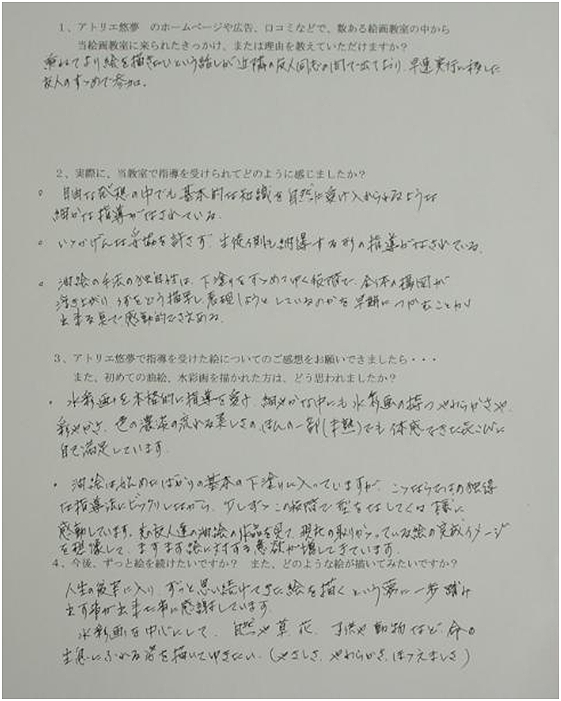 1、アトリエ悠夢　のホームページや広告、口コミなどで、数ある絵画教室の中から
当絵画教室に来られたきっかけ、または理由を教えていただけますか？
兼ねてより絵を描きたいという話しが近隣の友人同志の間で出ており、早速実行に移した
友人のすすめで参加。
2、実際に、当教室で指導を受けられてどのように感じましたか？
。自由な発想の中でも基本的な知識を自然に受け入れられるような
細かな指導がなされている。
。いいかげんな妥協を許さず、生徒側も納得する形の指導がなされている。
。油絵の手法の独自性は、下塗りをすすめてゆく段階で、全体の構図が
浮き上がり、何をどう描写し、表現しようとしているのかを早期につかむことが
出来る点で感動的でさえある。
3、アトリエ悠夢で指導を受けた絵についてのご感想をお願いできましたら・・・
また、初めての油絵、水彩画を描かれた方は、どう思われましたか？
・水彩画を本格的に指導を受け、細やかな中にも水彩画の持つやわらかさや、
彩やかさ、色の濃淡の流れる美しさの、ほんの一部(未熟)でも体感できた喜こびに
自己満足しています。
・油絵は始めたばかりの基本の下塗りに入っていますが、こちらならではの独得
な指導法にビックリしながら、少しずつこの段階で型をなしてくる様に
感動しています。先の友人達の油絵の作品を見て、現在の取りかかっている絵の完成イメージ
を想像して、ますます絵に対する意欲が増してきています。
4、今後、ずっと絵を続けたいですか？　また、どのような絵が描いてみたいですか？
人生の後半に入り、ずっと思い続けてきた絵を描くという夢に一歩踏み
出す事が出来た事に感謝しています。
水彩画を中心にして、自然や草花、子供や動物など、命の
生息にふれる姿を描いてゆきたい。(やさしさ、やわらかさ、ほほえましさ)